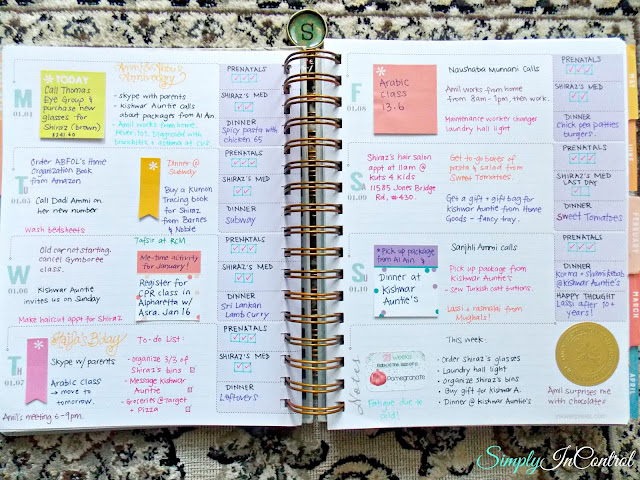 S
M
TODAY
Call Thomas
Eye Group &
purchase new
glasses for
Shiraz (brown)
Anniversary
- skype with parents
- Kishwar Auntie calls
about packages from Al Ain.
- Amil works from home.
PRENATALS
SHIRAZ'S MED
DINNER
Spicy pasta with
chicken 65
T
01.05
Order ABFOL's Home
Organization Book
from Amazon
Call Dadi Ammi on
her new number
Wash bedsheets
Dinner @
Subway
Buy a Kumon
Tracing book
for Shiraz
from Barnes
& Noble
Tafsir at RCM
PRENATALS
SHIRAZ'S MED
DINNER
Subway
W
01.06
Old car not starting.
cancel Gymboree
class.
Kishwar Auntie
invites us on Sunday
Make haircut appt for Shiraz
Me-time activity
for January!
Register for
CPR class in
Alpharetta w/
Asra. Jan 16
PRENATALS
SHIRAZ'S MED
DINNER
Sri Lankan
Lamb Curry
TH
01.07
B'day
Skype w/parents
Arabic Class
→ move to
tomorrow.
Amil's meeting 6-9pm.
To-do list:
- organize 3/3 of
Shiraz's bins
- Message Kishwar
Auntie
- Groceries @Target
+ Pizza
PRENATALS
SHIRAZ'S MED
DINNER
Leftovers
F
01.08
Arabic
class
13.6
Naushaba Mumani Calls
Amil works from home
from 8am - 1pm, then work.
Maintenance worker changer
Laundry hall light
PRENATALS
SHIRAZ'S MED
DINNER
Chick pea patties
burgers.
S
01.09
Shiraz's hair salon
appt at 11:30 am @
Kuts 4 Kids
11585 Jones Bridge
Rd, #430.
Get to-go boxes of
pasta & salad from
Sweet Tomatoes.
Get a gift + gift bag for
Kishwar Auntie from Home
Goods - fancy tray.
PRENATALS
SHIRAZ'S MED
LAST DAY
DINNER
Sweet Tomatoes
Su
01.10
* Pick up package
from Al Ain
Dinner at
Kishwar
Auntie's
Sanjhli Ammi calls
Pick up package from
Kishwar Auntie's
- Sew Turkish cot buttons.
Lassi + rasmalai from
Mughals!
PRENATALS
DINNER
@Kishwar Auntie's
HAPPY THOUGHT
Lassi after 10+
years!
Notes
21 weeks
Pomegranate
Fatigue due to
cold!
This week:
• Order Shiraz's glasses
• Laundry hall light
• Organize Shiraz's bins
• Buy gift for Kishwar A.
• Dinner @ Kishwar Auntie's
Amil Surprises me
with chocolates
MARCH
APRIL
SimplyInControl